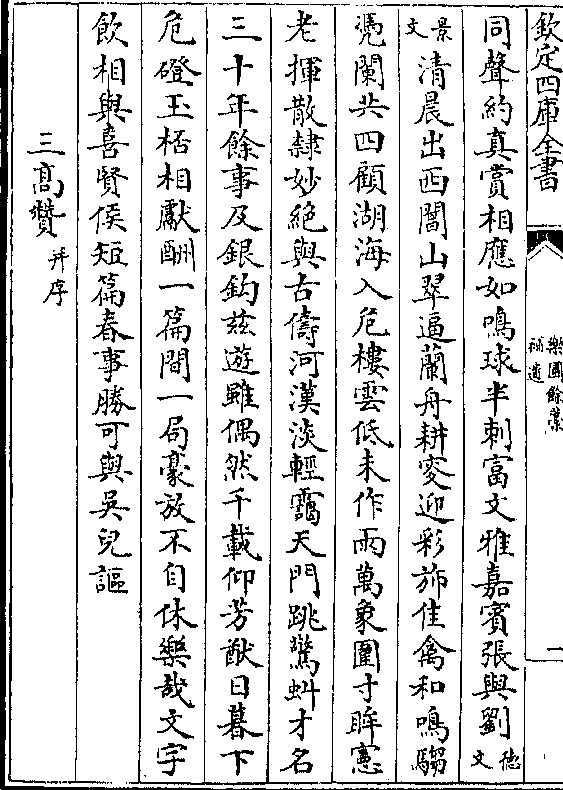 欽定四庫全書
樂圃餘藁
補遺
一
同聲約真賞相應如鳴球半刺富文雅嘉賓張與劉德文
景文清晨出西閶山翠逼蘭舟耕叟迎彩斾佳禽和鳴騶
凭闌共四顧湖海入危樓雲低未作雨萬象圍寸眸憲
老揮散隸妙絶與古儔河漢淡輕靄天門跳驚虯才名
三十年餘事及銀鈎兹遊雖偶然千載仰芳猷日暮下
危磴玉桮相獻酬一篇間一局豪放不自休樂哉文字
飲相與喜賢侯短篇春事勝可與吳兒謳
三高贊并序